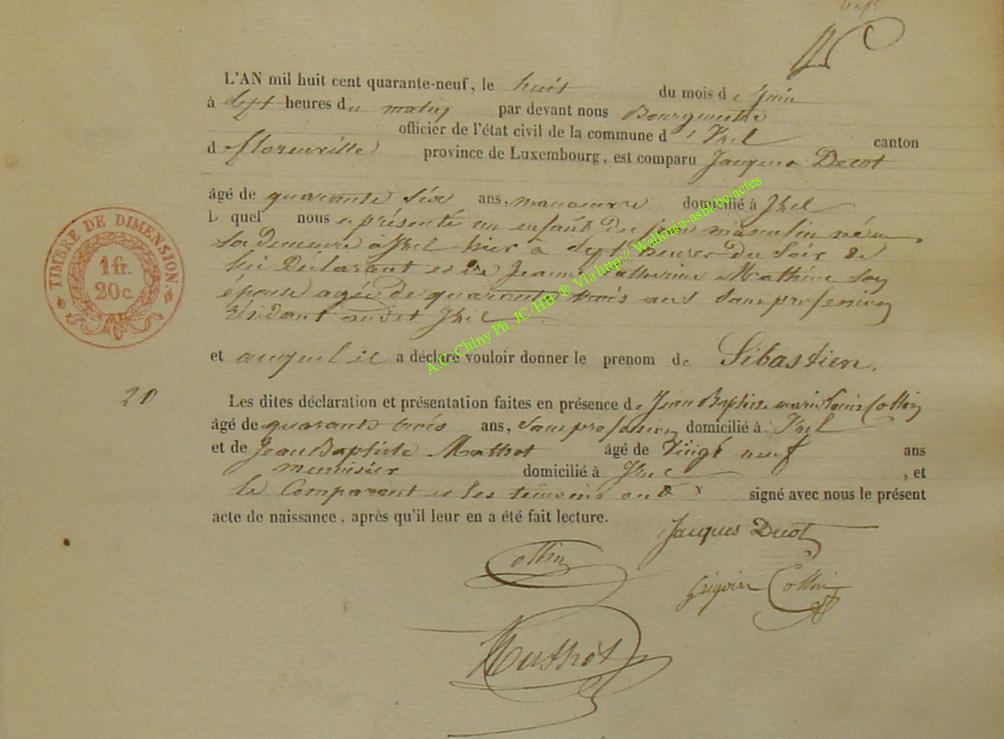 L'AN mil huit cent quarante-neuf, le huit du mois de Juin
à Sept heures du matin par devant nous Bourgmestre
officier de l'état civil de la commune d' Izel canton
d florenville province de Luxembourg, est comparu Jacques Decot
âgé de quarante Six ans, manoeuvre domicilié à Izel
L quel nous a présenté un enfant du masculin né en
Sa Demeure a Izel hier à heures du Soir de
lui Déclarant et de Jeanne Catherine Mathieu Son
épouse agée de quarante trois ans Sans profession
résidant audit Izel
et auquel il a déclaré vouloir donner le prenom de Sébastien.
20
Les dites déclaration et présentation faites en présence de Jean Baptiste marie Louis Collin
âgé de quarante trois ans, Sans profession domicilié à Izel
et de Jean Baptiste Mathot âgé de Vingt neuf ans
menuisier domicilié à Izel , et
le Comparant et les témoins ont signé avec nous le présent
acte de naissance, après qu'il leur en a été fait lecture.
Jacques Decot
Collin
Collin
Mathot
TIMBRE DE DIMENSION
1 fr.
20 c.
A.C. Chiny Ph. JC/HB ® Via http://Wallonia-asbl.be/actes